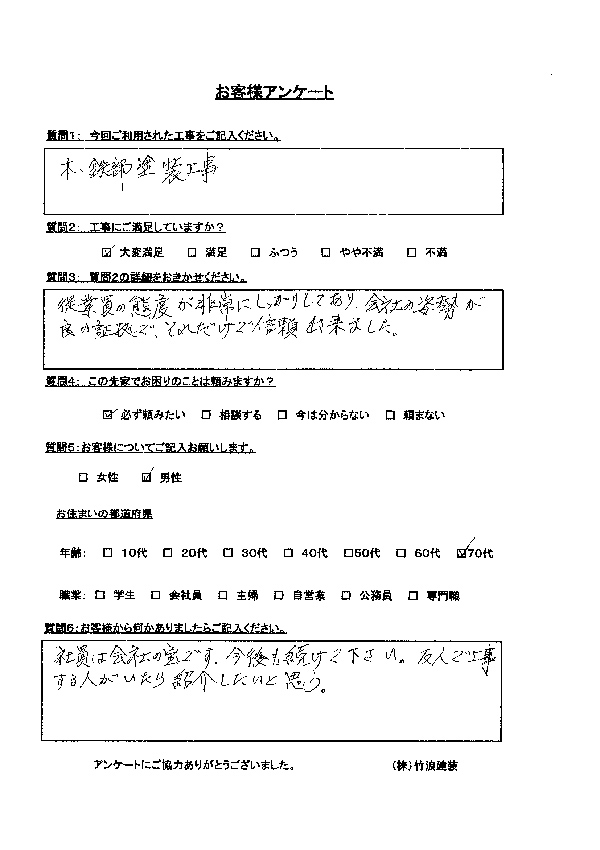 お客様アンケート
質問1: 今回ご利用された工事をご記入ください。
木、鉄部塗装工事
質問2: 工事にご満足していますか?
☑ 大変満足 □ 満足 □ ふつう □ やや不満 □ 不満
質問3: 質問2の詳細をおきかせください。
従業員の態度が非常にしっかりしており、会社の姿勢が
良の証拠で、それだけで信頼出来ました。
質問4: この先家でお困りのことは頼みますか?
☑ 必ず頼みたい □ 相談する □ 今は分からない □ 頼まない
質問5:お客様についてご記入お願いします。
□ 女性 ☑ 男性
お住まいの都道府県
年齢: □ 10代 □ 20代 □ 30代 □ 40代 □50代 □ 60代 ☑70代
職業: □ 学生 □ 会社員 □ 主婦 □ 自営業 □ 公務員 □ 専門職
質問6:お客様から何かありましたらご記入ください。
社員は会社の宝です。今後も続けて下さい。友人で工事
する人がいたら紹介したいと思う。
アンケートにご協力ありがとうございました。 (株)竹浪建装